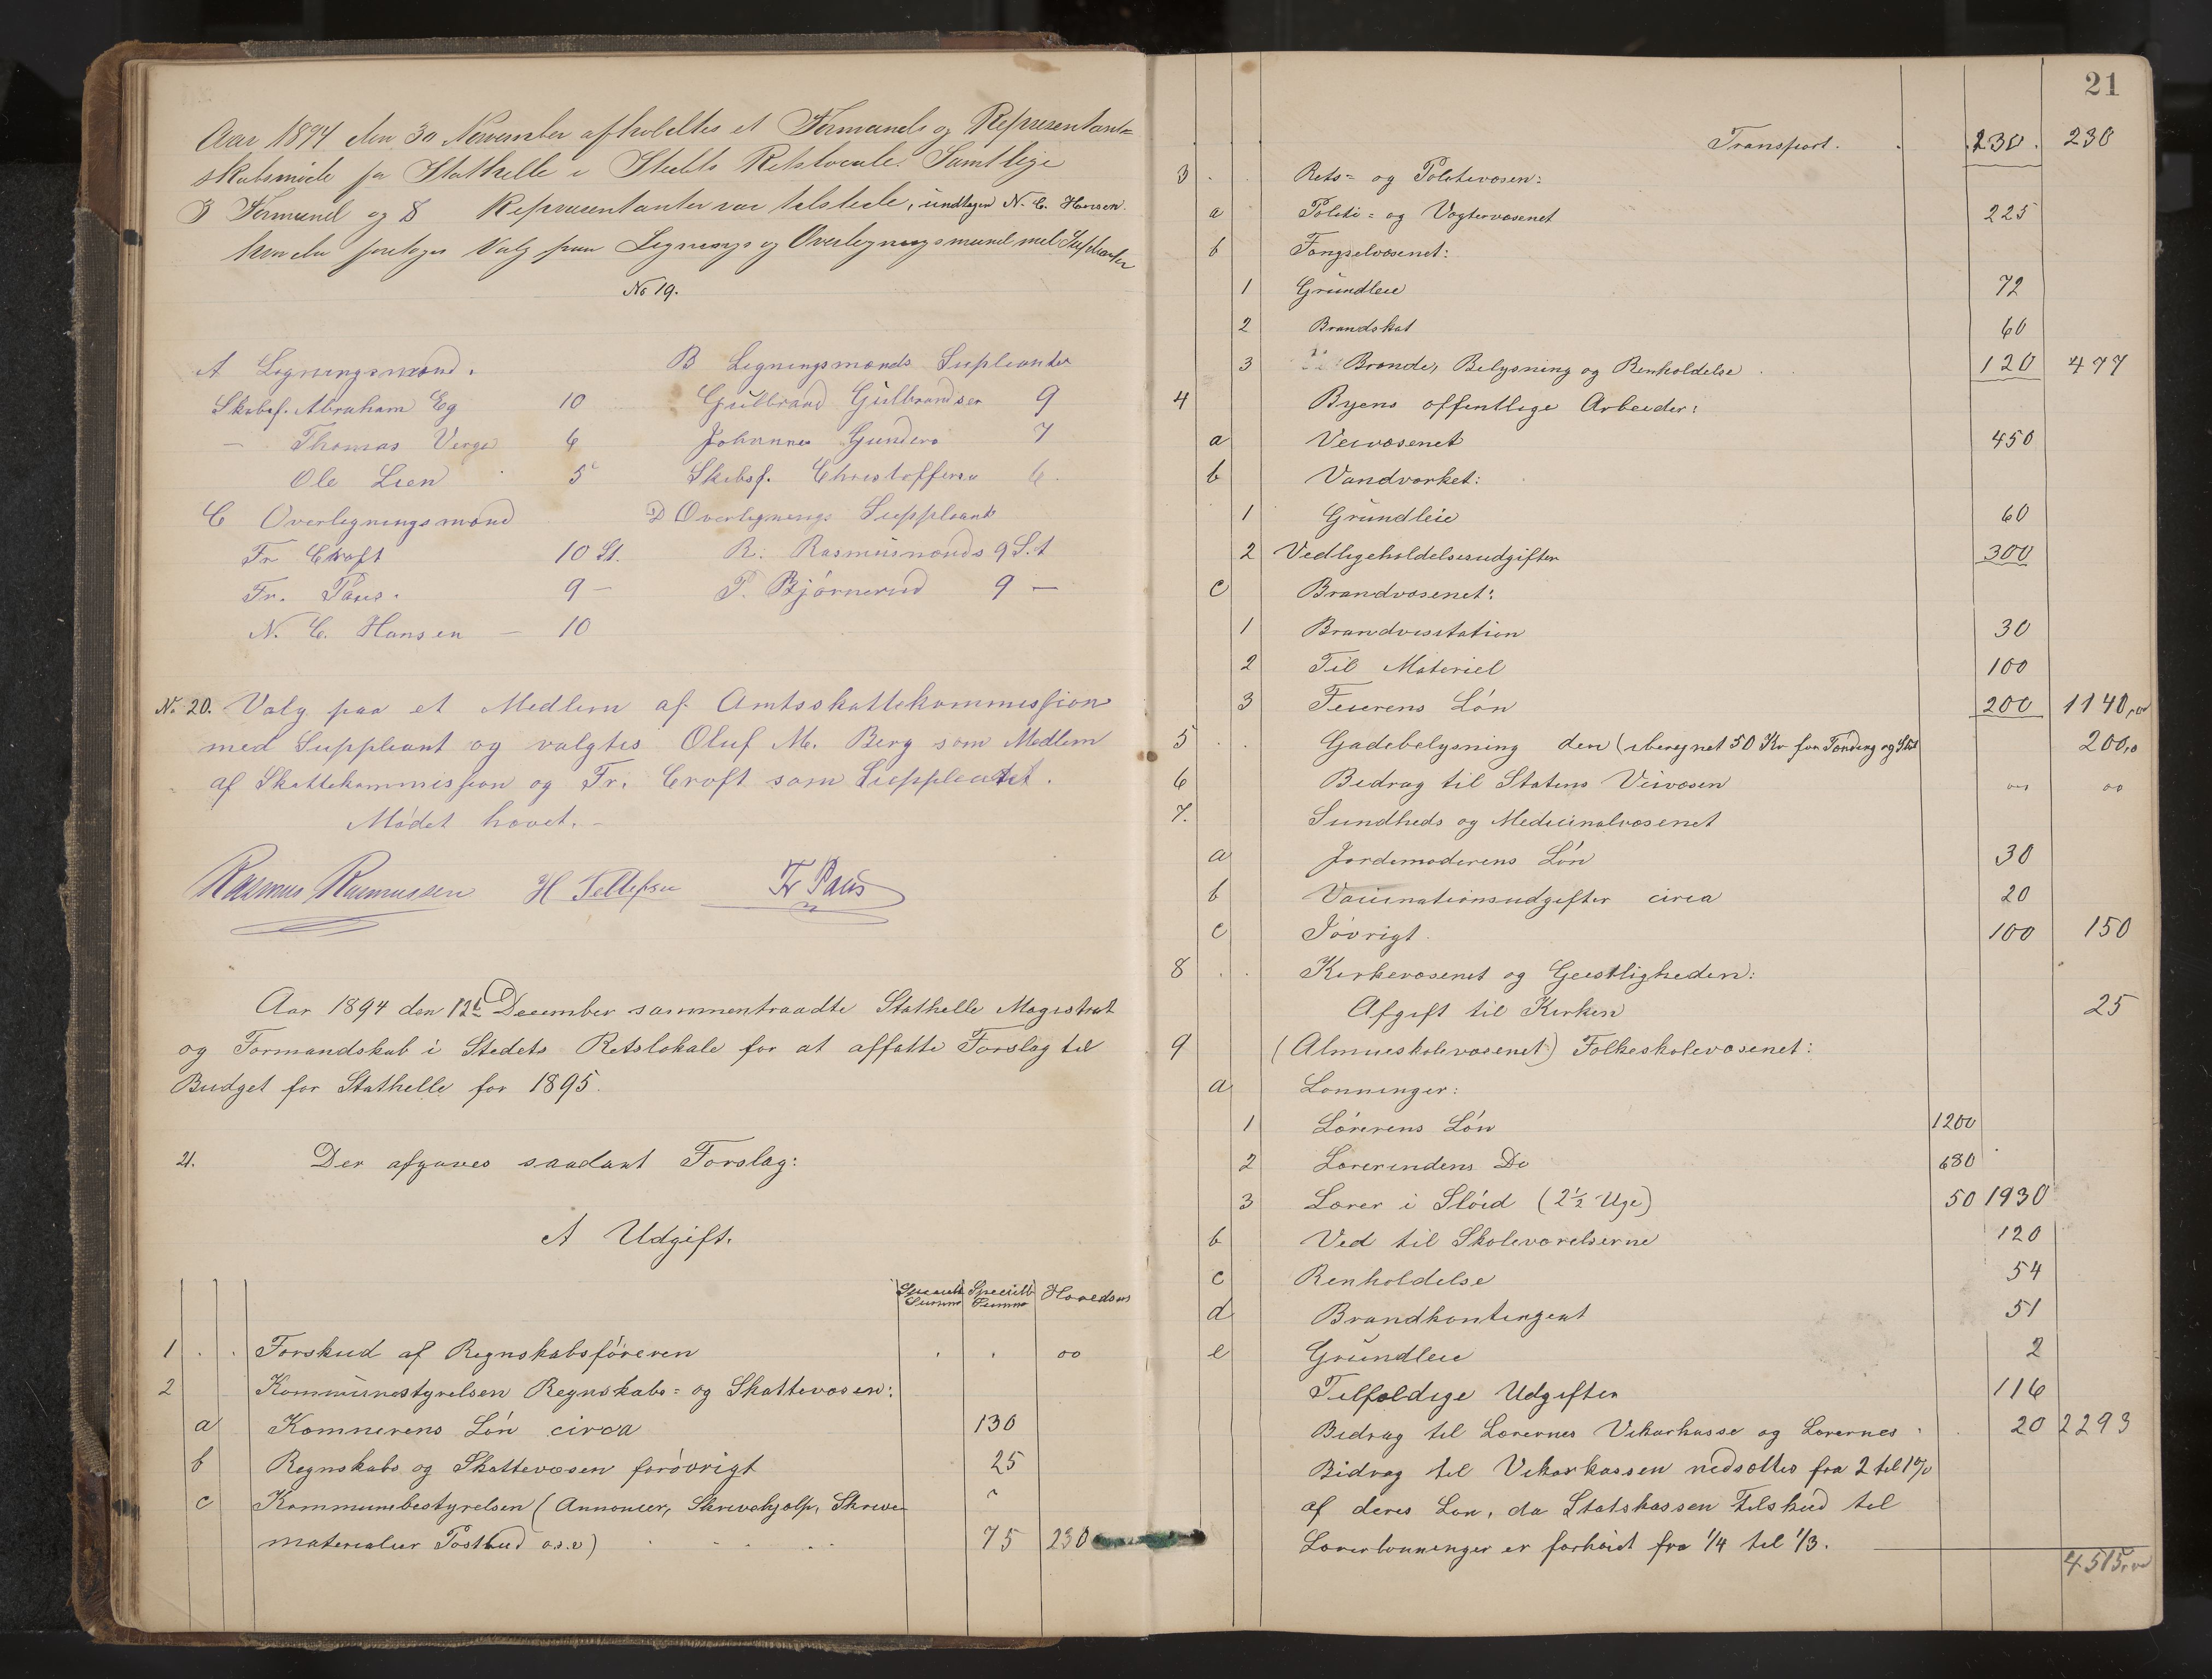 Aar 1894 den 30 November afholdtes et Formands og Representant=
skabsmöde for Stathelle i Stedets Retslocale. Samtlige
3 Formænd og 8 Repræsentanter var tilstede, undtagen N. C. Hansen.
hvor der foretoges Valg paa Lignings og Overligningsmænd med Supleanter
No 19.
A Ligningsmænd.
Skibsf. Abraham Eg 10
– Thomas Verge 6
Ole Lien 5
B Ligningsmænds Supleanter
Gulbrand Gulbrandsen 9
Johannes Gunders 7
Skibsf. Christoffersen 6.
C Overligningsmænd
Fr Croft 10 St.
Fr. Paus. 9 –
N. C. Hansen – 10
D Overlignings Suppleant
R. Rasmusmonds 9 S.t
P. Björnerud 9 –
No 20. Valg paa et Medlem af Amtsskattekommission
med Suppleant og valgtes Oluf M. Berg som Medlem
af Skattekommission og Fr. Croft som Suppleant.
Mödet hævet. –
Rasmus Rasmussen H Tellefsen Fr Paus
Aar 1894 den 12te December sammentraadte Stathelle Magistrat
og Formandskab i Stedets Retslokale for at affatte Forslag til
Budget for Stathelle for 1895.
21. Der afgaves saadant Forslag:
A Udgift.
Specielle Summe Specielle Summe Hovedsum
1 . . Forskud af Regnskabsföreren . . oo
2 Kommunestyrelsen Regnskabs= og Skattevæsen:
a Kæmnerens Lön circa 130
b Regnskabs og Skattevæsen forövrigt 25
c Kommunebestyrelsen (Annoncer, Skrivehjælp, Skrive
materialier Postbud o.s.v) 75 230
21
Transport. 230. 230
3 Rets= og Politivæsen:
a Politi= og Vægtervæsenet 225
b Fængselvæsenet:
1 Grundleie 72
2 Brandskat 60
3 Brænde, Belysning og Renholdelse 120 477
4 Byens offentlige Arbeider:
a Veivæsenet 450
b Vandværket:
1 Grundleie 60
2 Vedligeholdelsesudgifter 300
c Brandvæsenet:
1 Brandvisitation 30
2 Til Materiel 100
3 Feierens Lön 200 1140,00
5 Gadebelysning den (iberegnet 50 Kr for Tænding og Stel 200,0
6 Bidrag til Statens Veivæsen oo oo
7. Sundheds og Medicinalvæsenet
a Jordemoderens Lön 30
b Vaccinationsudgifter circa 20
c Iövrigt. 100 150
8 . . Kirkevæsenet og Geistligheden:
Afgift til Kirken 25
9 (Almueskolevæsenet) Folkeskolevæsenet:
a Lønninger:
1 Lærerens Lön 1200
2 Lærerindens Do 680
3 Lærer i Slöid (2½ Uge) 50 1930
b Ved til Skoleværelserne 120
c Renholdelse 54
d Brandkontingent 51
e Grundleie 2
Tilfældige Udgifter 116
Bidrag til Lærernes Vikarkasse og Lærernes 20 2293
Bidrag til Vikarkassen nedsættes fra 2 til 1%
af deres Løn, da Statskassen Tilskud til
Lærerlønninger er forhöiet fra 1/4 til 1/3.
4515,00